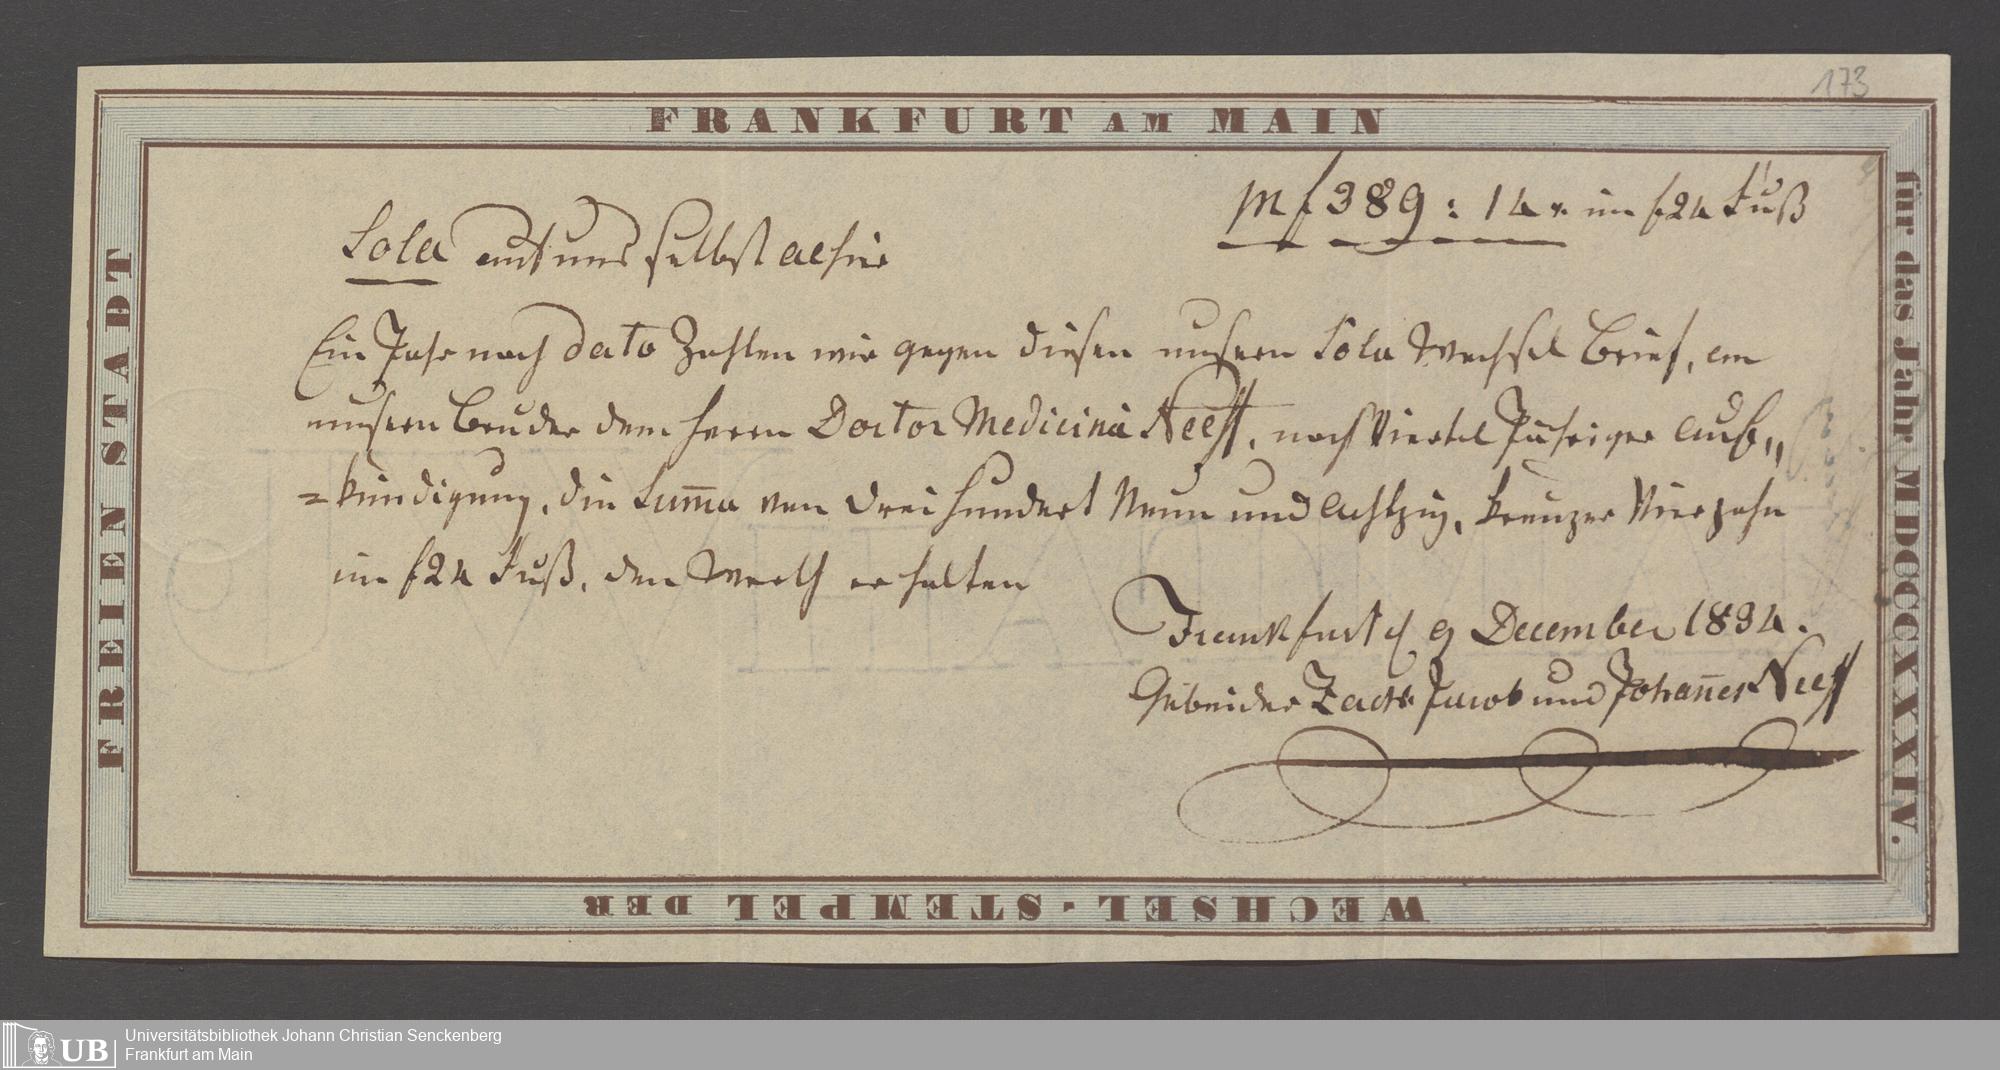 173
FRANKFURT AM MAIN
für das Jahr MDCCCXXXIV.
WECHSEL-STEMPEL DER
FREIEN STADT
f 389 : 14 x. im f 24 Fuß
Sola auf uns selbst alhier
Ein Jahr nach dato Zahlen wir gegen diesen unsern Sola Wechsel Brief, an
unsern Bruder dem Herrn Doctor Medicinä Neeff, nach Viertel Jähriger Auf„
=kündigung, die Sum̄a von Drei hundert Neun und Achtzig, Kreuzer Vierzehn
im f 24 Fuß, den Werth erhalten
Frankfurt d 9 December 1834.
Gebrüder Jacob und Johan̄es Neeff
UB
Universitätsbibliothek Johann Christian Senckenberg
Frankfurt am Main